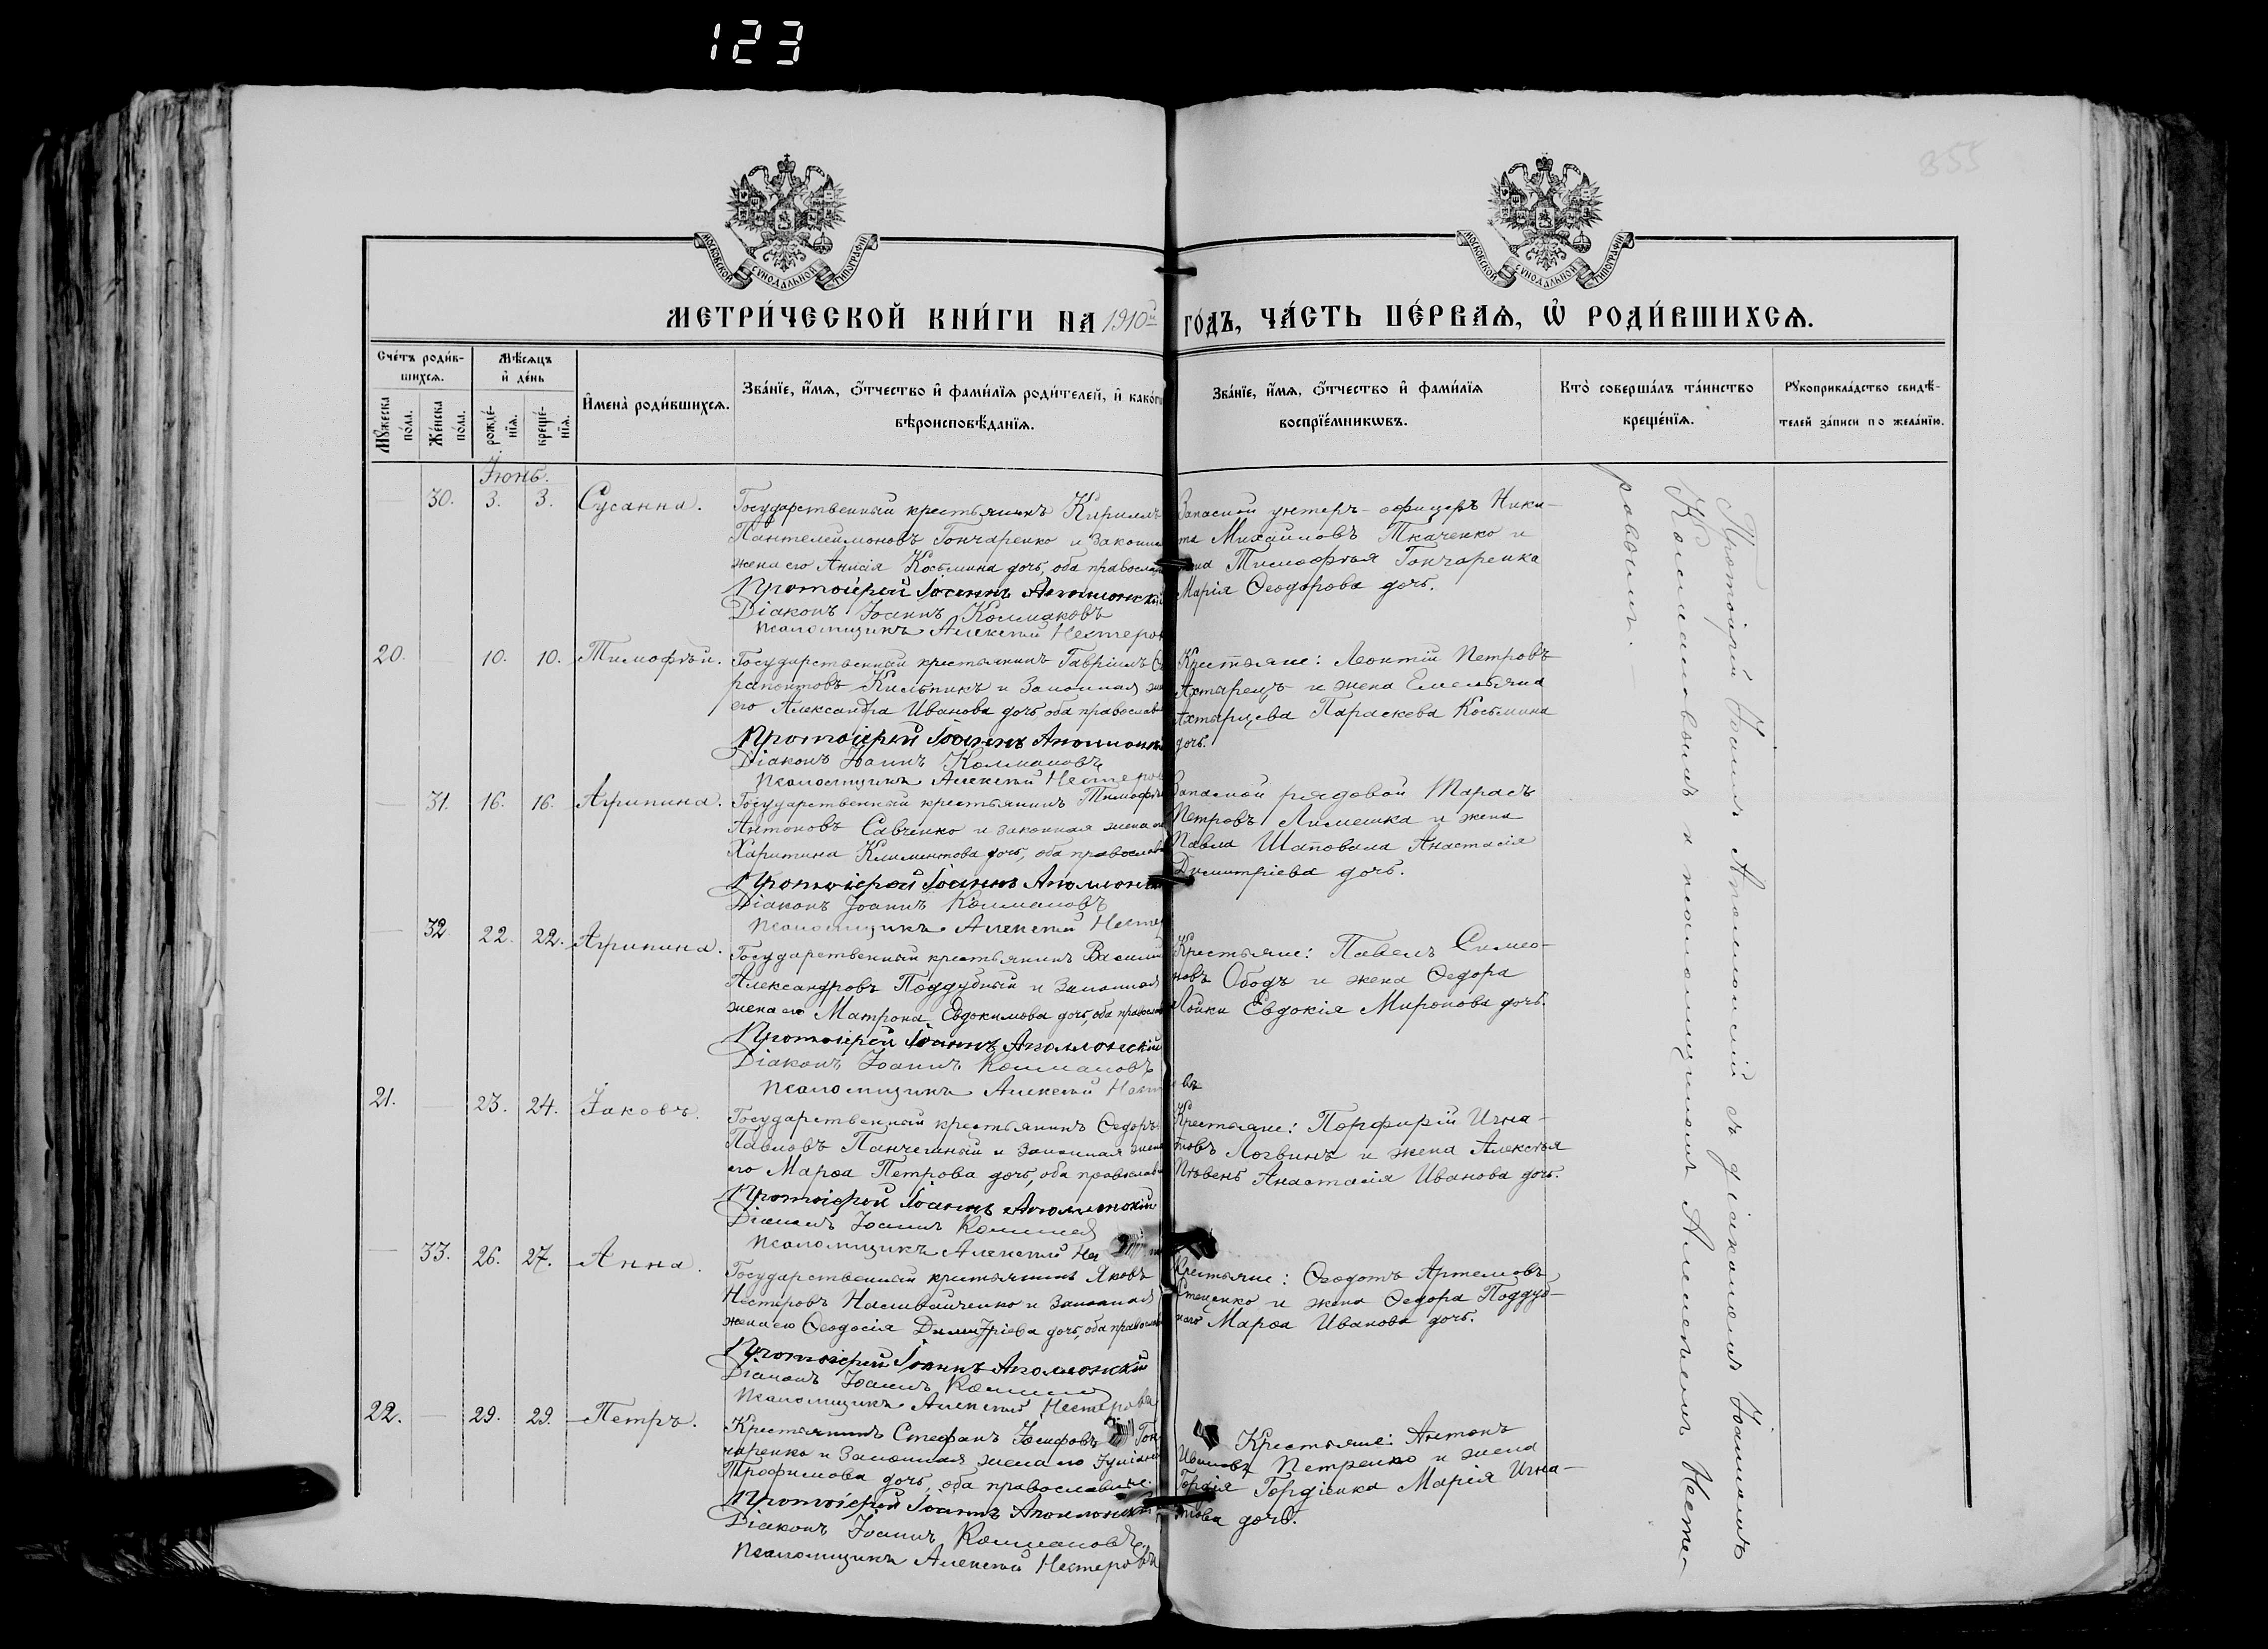 123
355
МОСКОВСКОЙ СѴНОДАЛЬНОЙ ТИПОГРАФІИ
МОСКОВСКОЙ СѴНОДАЛЬНОЙ ТИПОГРАФІИ
МЕТРИ́ЧЕСКОЙ КНИ́ГИ НА 1910й ГО́ДЪ, ЧА́СТЬ ПЕ́РВАѦ, Ѡ РОДИ́ВШИХСѦ.
Сче́тъ роди́в-
шихсѧ.
Мꙋжеска по́ла.
Же́нска по́ла.
Мѣ́сѧцъ
и҆ де́нь
рожде́-
нїѧ.
креще́-
нїѧ.
И҆мена̀ роди́вшихсѧ.
Зва́нїе, и҆́мѧ, ѻ҆́тчество и҆ фами́лїѧ роди́телей, и҆ како́гѡ
вѣроисповѣ́данїѧ.
Зва́нїе, и҆́мѧ, ѻ҆́тчество и҆ фами́лїѧ
воспрїе́мникѡвъ.
Кто̀ соверша́лъ та́инство
креще́нїѧ.
Рꙋкоприкла́дство свидѣ́-
телей за́писи по жела́нїю.
Іюнь.
30. 3. 3. Сусанна.
Государственный крестьянинъ Кириллъ
Пантелеймоновъ Гончаренко и законна
жена его Анисія Косьмина дочь, оба православ
Протоіерей Іоаннъ Аполлонскій
Діаконъ Іоаннъ Колмаковъ
Псаломщикъ Алексѣй Нестеров
Запасной унтеръ-офицеръ Ники-
та Михайловъ Ткаченко и
жена Тимофѣя Гончаренка
Марія Ѳеодорова дочь.
20. 10. 10. Тимофѣй.
Государственный крестьянинъ Гавріилъ Се
рапіоновъ Кильникъ и законная же
его Александра Иванова дочь, оба православ
Протоіерей Іоаннъ Аполлонск
Діаконъ Іоаннъ Колмаковъ
Псаломщикъ Алексѣй Нестеров
Крестьяне: Леонтій Петровъ
Ахтырецъ и жена Емельяна
Ахтырцева Параскева Косьмина
дочь.
31. 16. 16. Агрипина.
Государственный крестьянинъ Тимофѣй
Антоновъ Савченко и законная жена его
Харитина Климентова дочь, оба православ
Протоіерей Іоаннъ Аполлонск
Діаконъ Іоаннъ Колмаковъ
Псаломщикъ Алексѣй Несте
Запасной рядовой Тарасъ
Петровъ Лимешка и жена
Павла Шаповала Анастасія
Димитріева дочь.
32. 22. 22. Агрипина.
Государственный крестьянинъ Василій
Александровъ Поддубный и законная
жена его Матрона Евдокимова дочь, оба православ
Протоіерей Іоаннъ Аполлонскій
Діаконъ Іоаннъ Колмаковъ
Псаломщикъ Алексѣй Нест въ
Крестьяне: Павелъ Симео-
новъ Ободъ и жена Ѳедора
Лойки Евдокія Миронова дочь.
21. 23. 24. Іаковъ.
Государственный крестьянинъ Ѳедоръ
Павловъ Панчешный и законная жена
его Марѳа Петрова дочь, оба православ
Протоіерей Іоаннъ Аполлонскій
Діаконъ Іоаннъ
Псаломщикъ Алексѣй Нес
Крестьяне: Порфирій Игна-
товъ Логвинъ и жена Алексѣя
Пѣвень Анастасія Иванова дочь.
33. 26. 27. Анна.
Государственный крестьянинъ Яковъ
Нестеровъ Наливайченко и законная
жена его Ѳеодосія Димитріева дочь, оба православ
Протоіерей Іоаннъ Аполлонскій
Діаконъ Іоаннъ
Псаломщикъ Алексѣй Нестеровъ
Крестьяне: Ѳеодотъ Артемовъ
Стеценко и жена Ѳедора Поддуб-
наго Марѳа Иванова дочь.
22. 29. 29. Петръ.
Крестьянинъ Стефанъ Іосифовъ Гон
чаренко и законная жена его Іуліанія
Трофимова дочь, оба православные.
Протоіерей Іоаннъ Аполлонскій
Діаконъ Іоаннъ Колмаковъ
Псаломщикъ Алексѣй Нестеровъ
Крестьяне: Антонъ
Ивановъ Петренко и жена
Гордія Гордіенка Марія Игна-
това дочь.
Протоіерей Іоаннъ Аполлонскій съ діакономъ Іоанномъ
Колмаковымъ и псаломщикомъ Алексѣемъ Несте-
ровымъ.